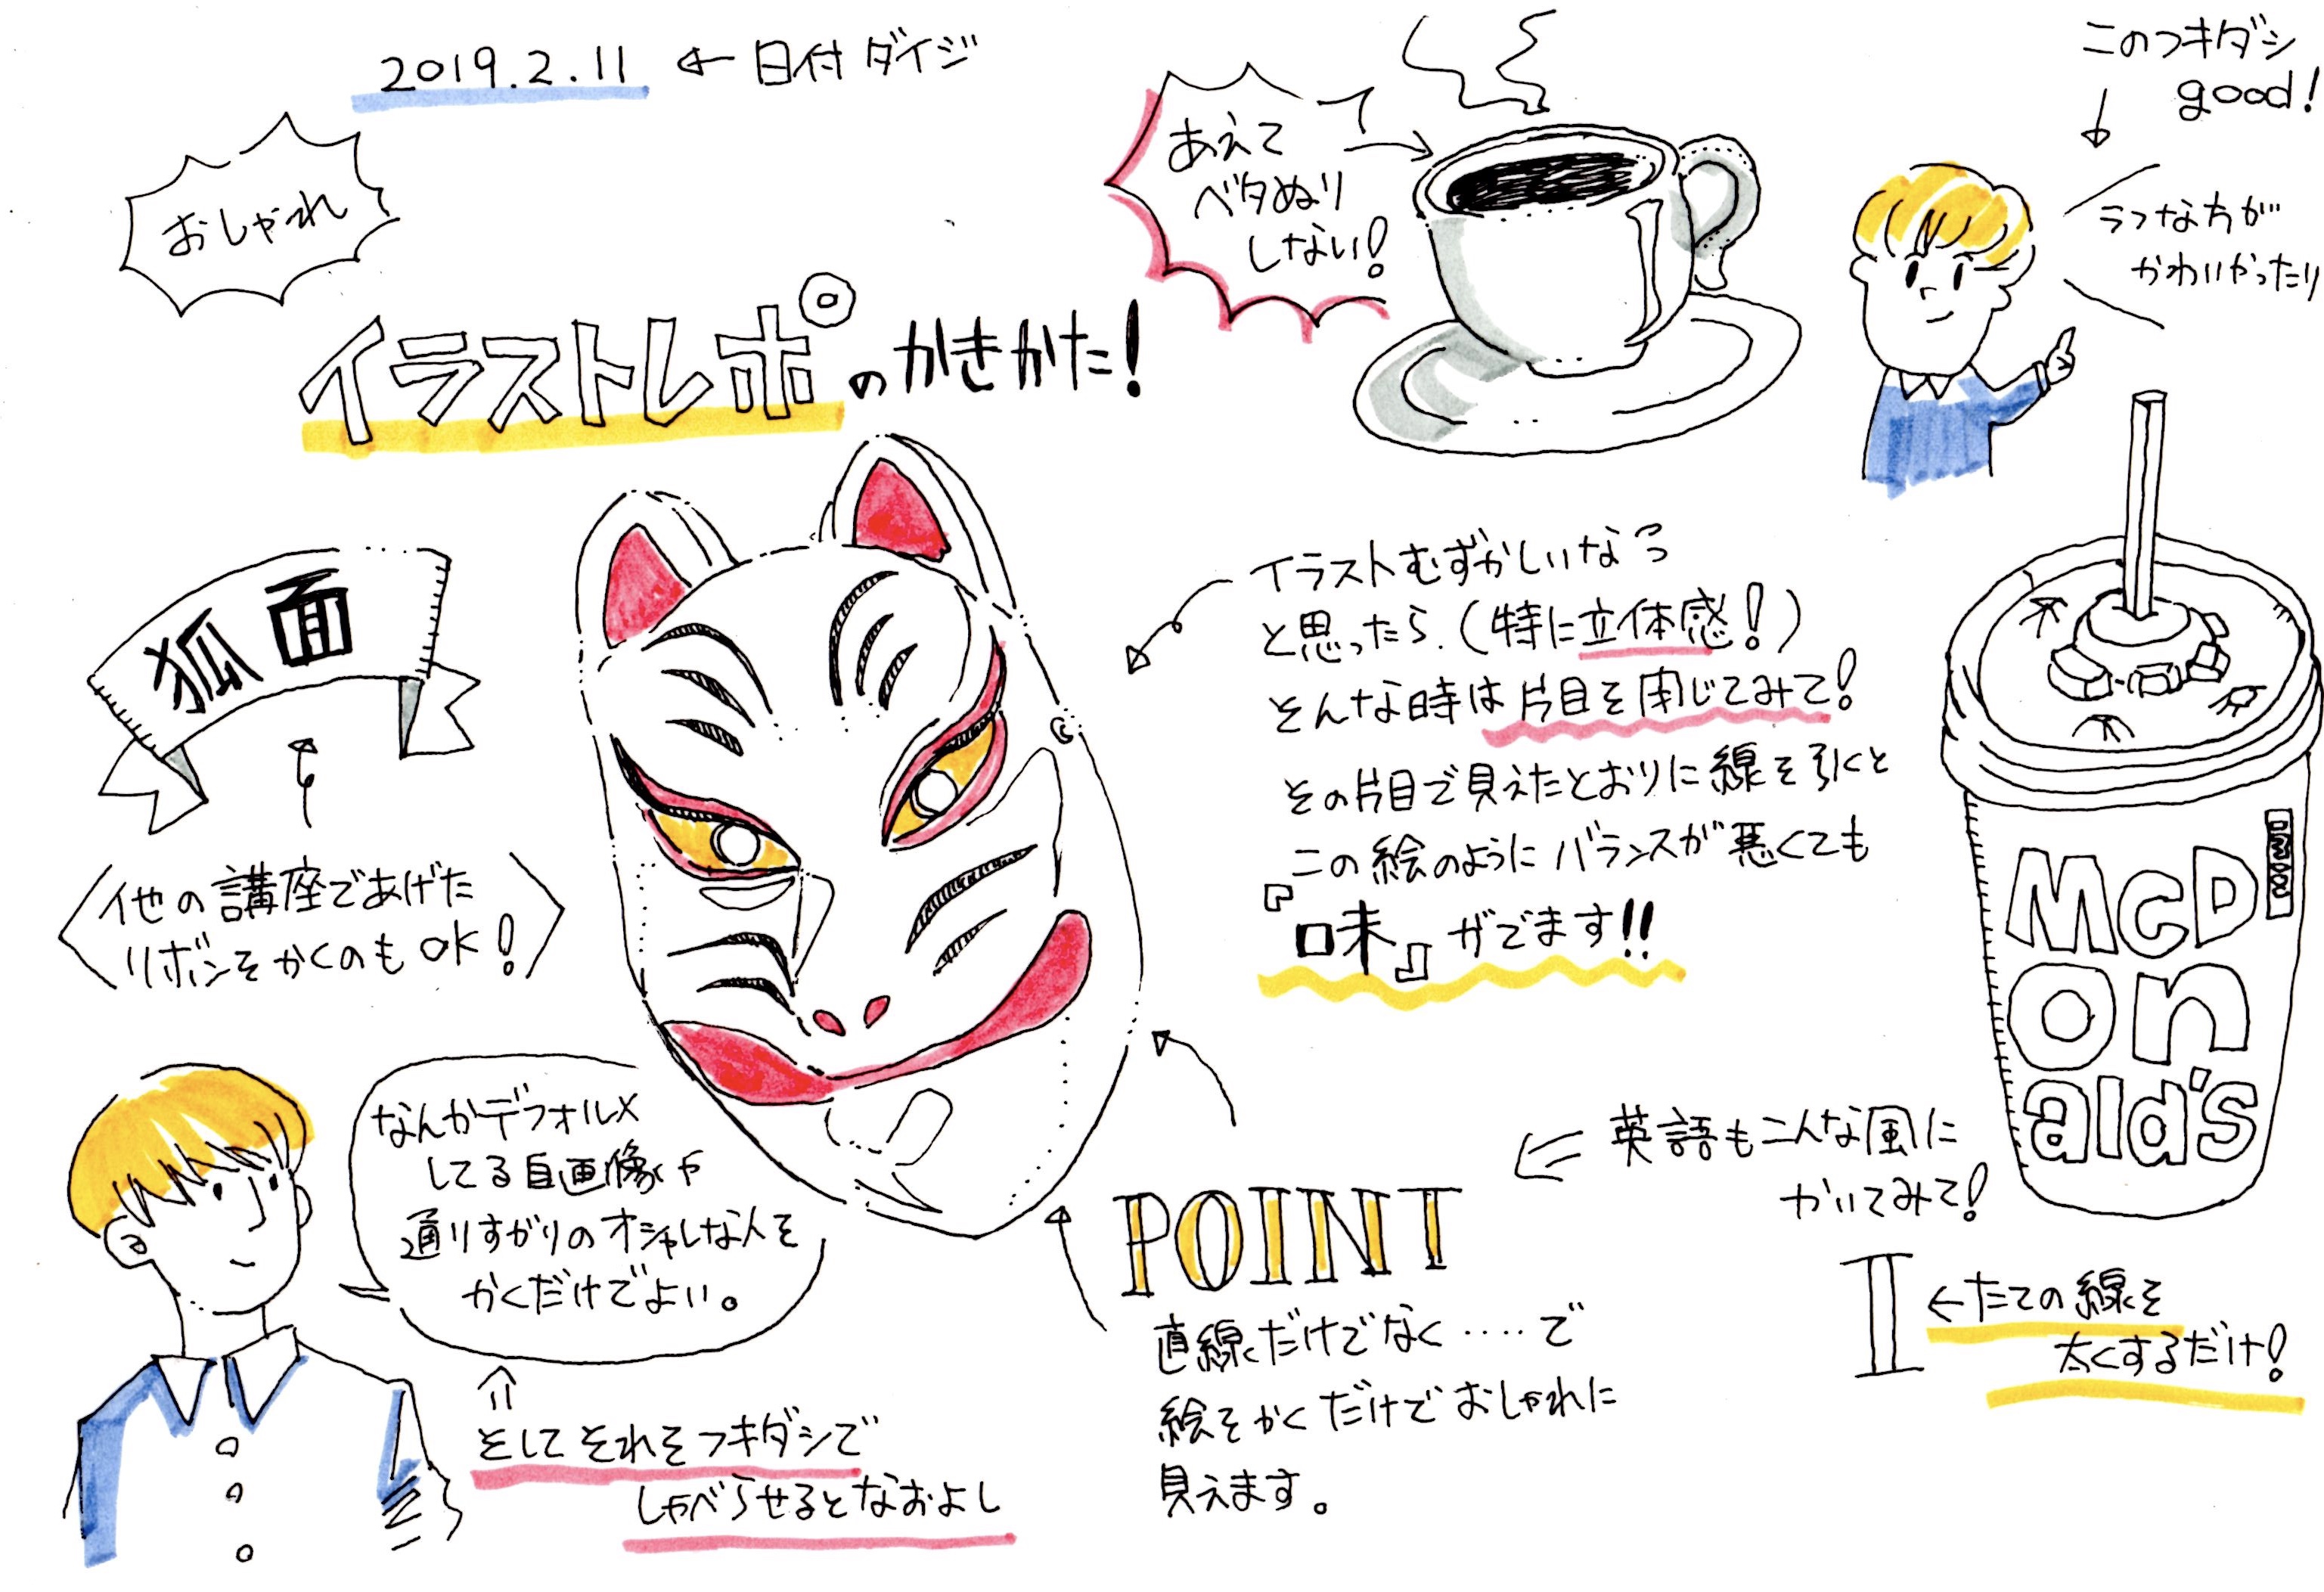 2019.2.11 ← 日付ダイジ
おしゃれ
イラストレポのかきかた!
あえて
ベタぬり
しない!
このフキダシ
good!
ラフな方が
かわいかったり
狐面
他の講座であげた
リボンをかくのもOK!
イラストむずかしいなっ
と思ったら.(特に立体感!)
そんな時は片目を閉じてみて!
その片目で見えたとおりに線を引くと
この絵のようにバランスが悪くても
『味』がでます!!
McD
on
ald's
なんかデフォルメ
してる自画像や
通りすがりのオシャレな人を
かくだけでよい。
そしてそれをフキダシで
しゃべらせるとなおよし
POINT
直線だけでなく……で
絵をかくだけでおしゃれに
見えます。
英語もこんな風に
かいてみて!
I ←たての線を
太くするだけ!